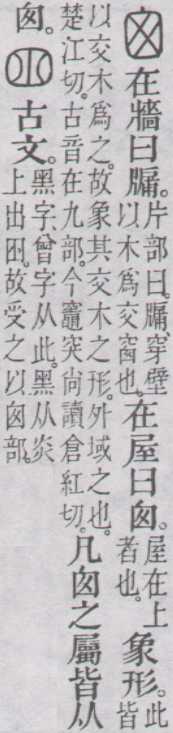 囪在牆曰牖。片部曰。牖、穿壁以木爲交窗也。在屋曰囪。屋在上者也。象形。此皆
以交木爲之。故象其交木之形。外域之也。楚江切。古音在九部。今竈突尚讀倉紅切。凡囪之屬皆从
囪。古文。黑字、曾字从此。黑从炎上出囪。故受之以囪部。